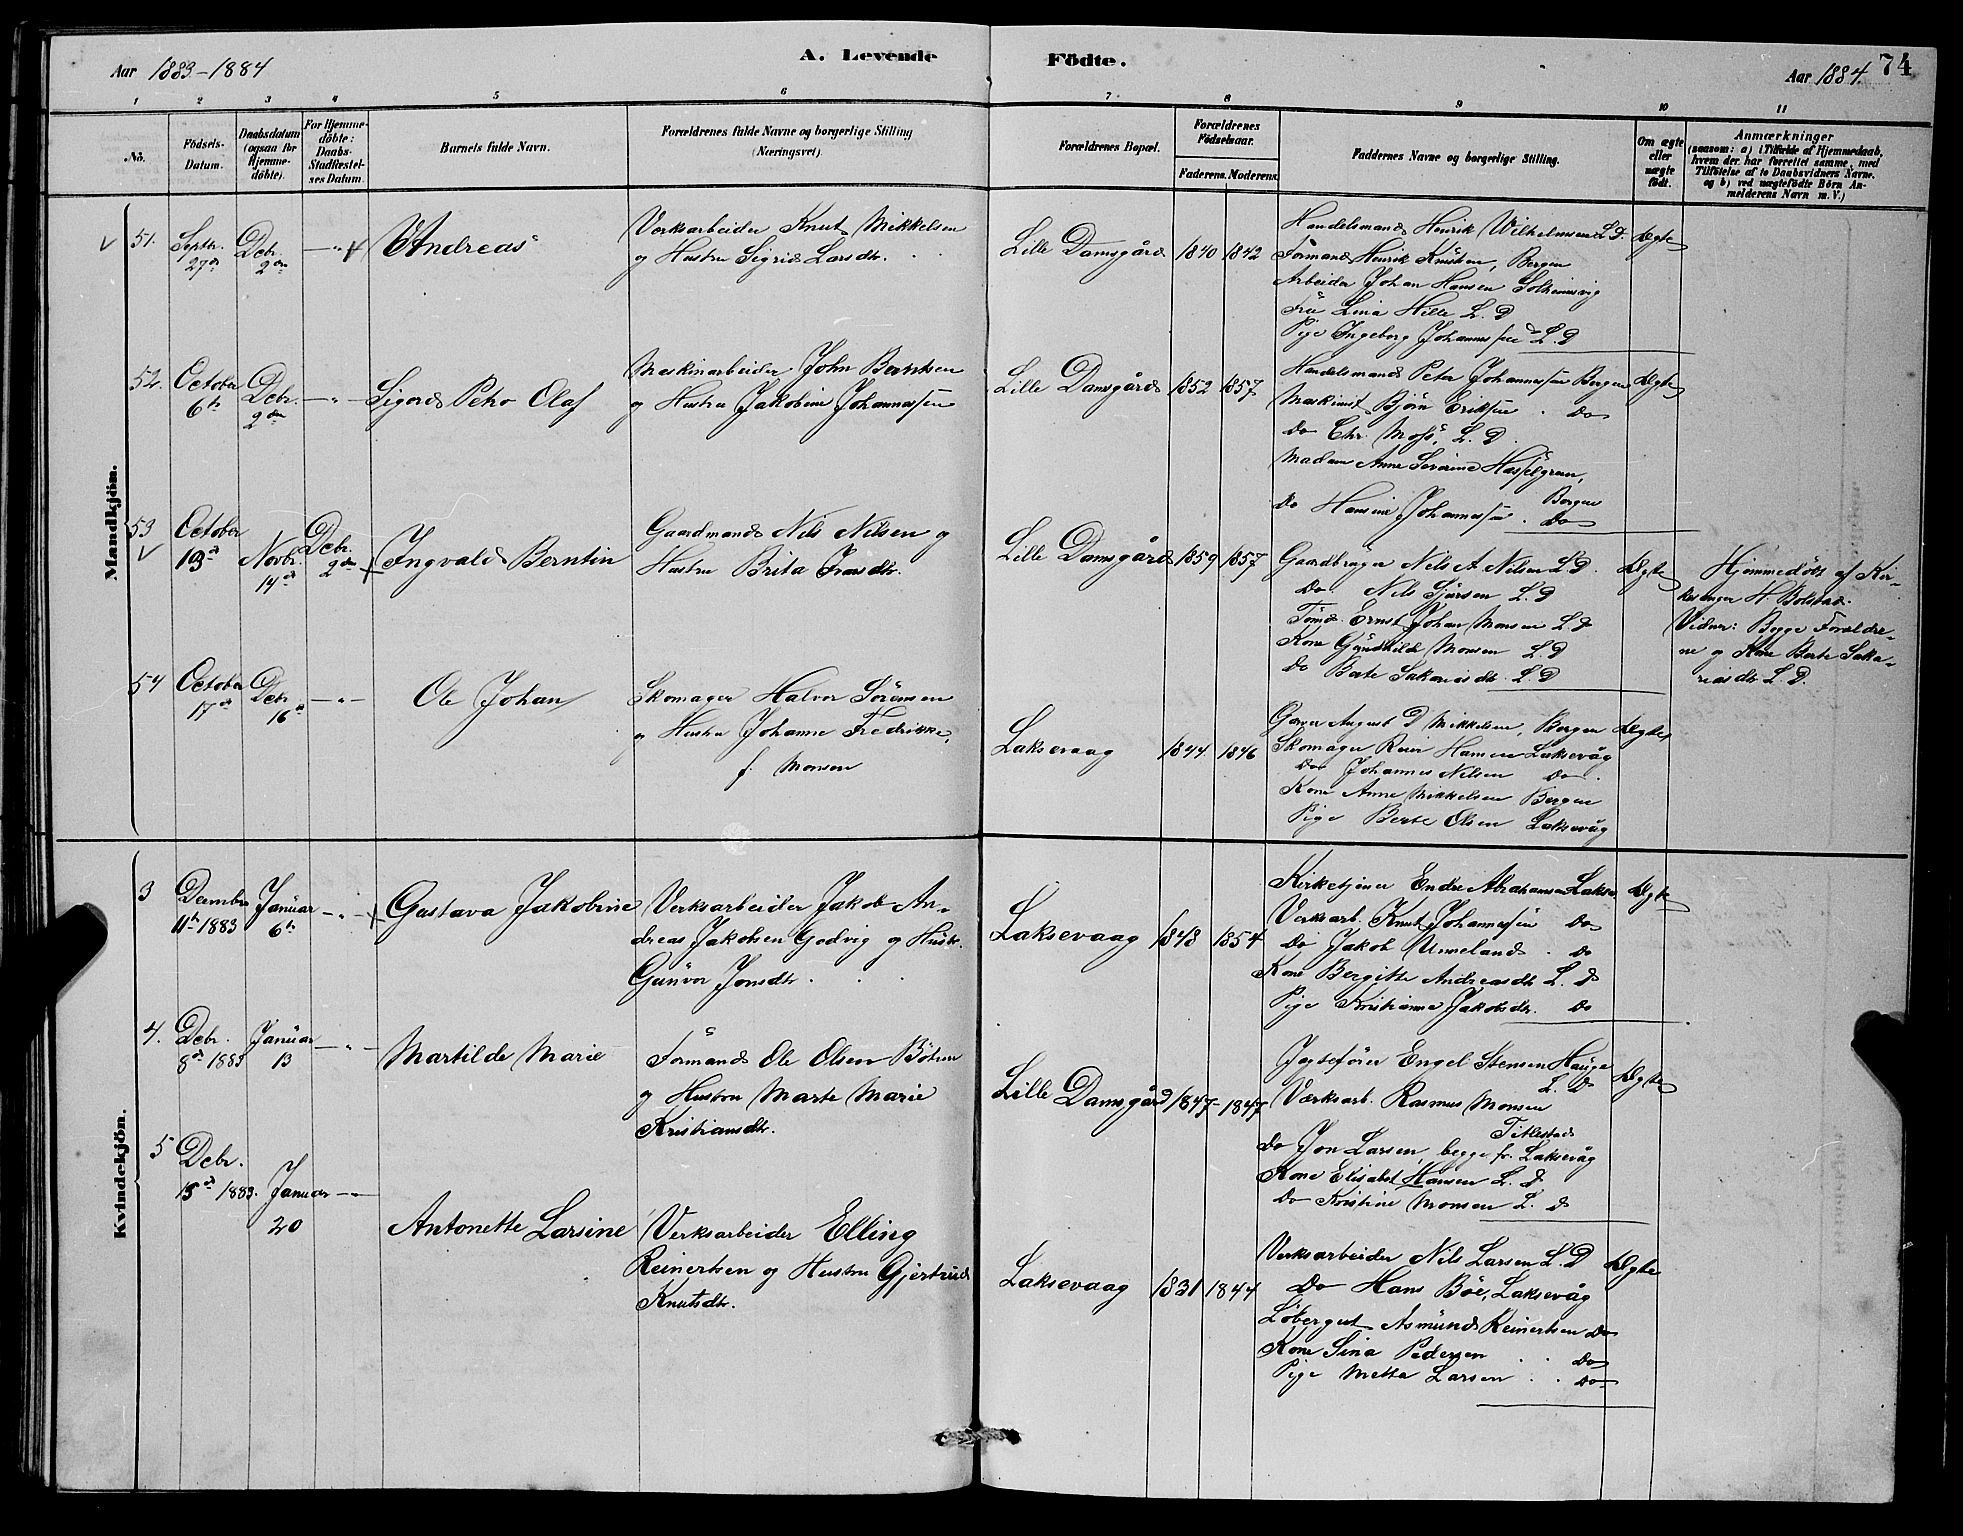 Aar 1883-1884
A. Levende
Födte.
Aar 1884.
74
1 2 3 4 5 6 7 8 9 10 11
No.
Födsels-
Datum.
Daabsdatum
(ogsaa for
Hjemme-
döbte).
For Hjemme-
döbte:
Daabs-
Stadfæstel-
ses Datum.
Barnets fulde Navn.
Forældrenes fulde Navne og borgerlige Stilling
(Næringsvei).
Forældrenes Bopæl.
Forældrenes
Födselsaar.
Faderens. Moderens.
Faddernes Navne og borgerlige Stilling.
Om ægte
eller
uægte
födt.
Anmærkninger
(saasom: a) i Tilfælde af Hjemmedaab,
hvem der har forrettet samme, med
Tilföielse af to Daabsvidners Navne.
og b) ved uægtefödte Börn An-
melderens Navn m. V.)
Mandkjön.
51.
Septr.
27de
Debr.
2den
Andreas
Verksarbeider Knut Mikkelsen
og Hustru Sigrid Larsdtr.
Lille Damsgård 1840 1842
Handelsmand Henrik Wilhelmsen L. D.
Formand Henrik Knutsen, Bergen
Arbeider Johan Hansen Solheimsvig
Frü Lina Hille L. D
Pige Ingeborg Johannessen L. D
Ægte
52.
October
6te
Debr.
2den
Sigurd Petro Olaf
Maskinarbeider John Berntsen
og Hustru Jakobine Johannessen
Lille Damsgård 1852 1857
Handelsmand Peter Johannessen Bergen
Maskinist Björn Eriksen Do
Do Chr. Moss, L. D.
Madam Anne Severine Hasselgreen,
Bergen
Do Hansine Johannessen Do
Ægte
53
October
13de
Novbr.
14de
Debr.
2den
Ingvald Berntin
Gaardmand Nils Nilsen og
Hustru Brita Ivarsdtr.
Lille Damsgård 1859 1857
Gaardbruger Nils A. Nilsen L. D.
Do Nils Sjursen L. D
Tömd. Ernst Johan Monsen L. D
Kone Gündhilde Monsen L. D
Do Berte Sakariasdtr. L. D
Ægte
Hjemmedöbt af Kir-
kesanger H. Bolstad.
Vidner: Begge Forældre-
ne og Kone Berte Saka-
riasdtr. L. D.
54
October
17de
Debr.
16de
Ole Johan
Skomager Halvor Sörensen
og Hustru Johanne Fredrikke,
f. Monsen
Laksevaag 1844 1846
Garver August D Mikkelsen, Bergen
Skomager Reier Hansen Laksevåg
Do Johannes Nilsen Do
Kone Anne Mikkelsen Bergen
Pige Berte Olsen Laksevåg
Ægte
Kvindekjön.
3
Decembr
11te 1883
Januar
6te
Gustava Jakobine
Verksarbeider Jakob An-
dreas Jakobsen Godvig og Hustr.
Gunvor Jonsdtr.
Laksevaag 1848 1854
Kirketjener Endre Abrahamsen Lakse
Verksarb. Knut Johannessen Do
Do Jakob Unneland Do
Kone Bergitte Andreasdtr L. D
Pige Kristianna Jakobsdtr. Do
Ægte
4.
Debr.
8de 1883
Januar
13
Martilde Marie
Formand Ole Olsen Böhm
og Hustru Marte Marie
Kristiansdtr.
Lille Damsgård 1847 - 1847
Jagtefører Engel Stensen Hauge
L. D
Værksarb. Rasmus Monsen
Titlestad
Do Jon Larsen, begge fr. Laksevåg
Kone Elisabet Hansen L. D
Do Kristine Monsen L. D
Ægte
5
Debr.
15de 1883.
Januar
20
Antonette Larsine
Verksarbeider Elling
Reinertsen og Hustru Gjertrud
Knutsdtr.
Laksevaag 1831 1844
Verksarbeider Nils Larsen L. D
Do Hans Böe, Laksevåg
Löbergut Asmünd Reinertsen Do
Kone Sina Pedersen Do
Pige Metta Larsen Do
Ægte